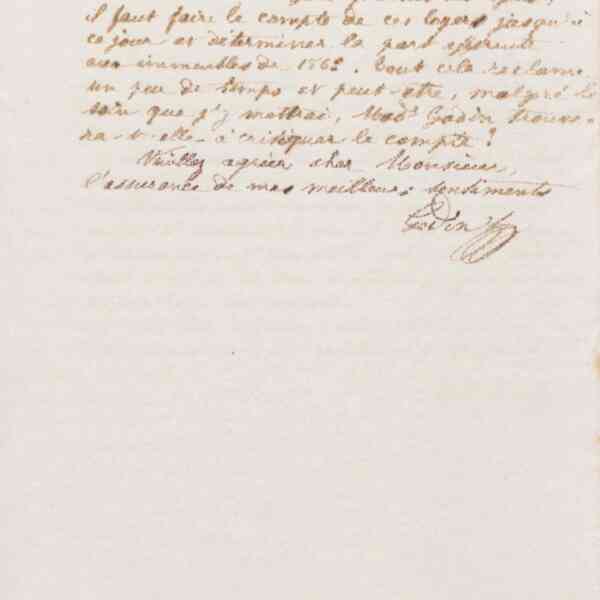 il faut faire le compte de ces loyers jusqu'à
ce jour et déterminer la part afférente
aux immeubles de 1862. Tout cela réclame
un peu de temps et peut être, malgré le
soin que j'y mettrai, Mad. Godin trouve-
ra-t-elle à critiquer le compte?
Veuillez agréer cher Monsieur,
l'assurance de mes meilleurs sentiments
Godin